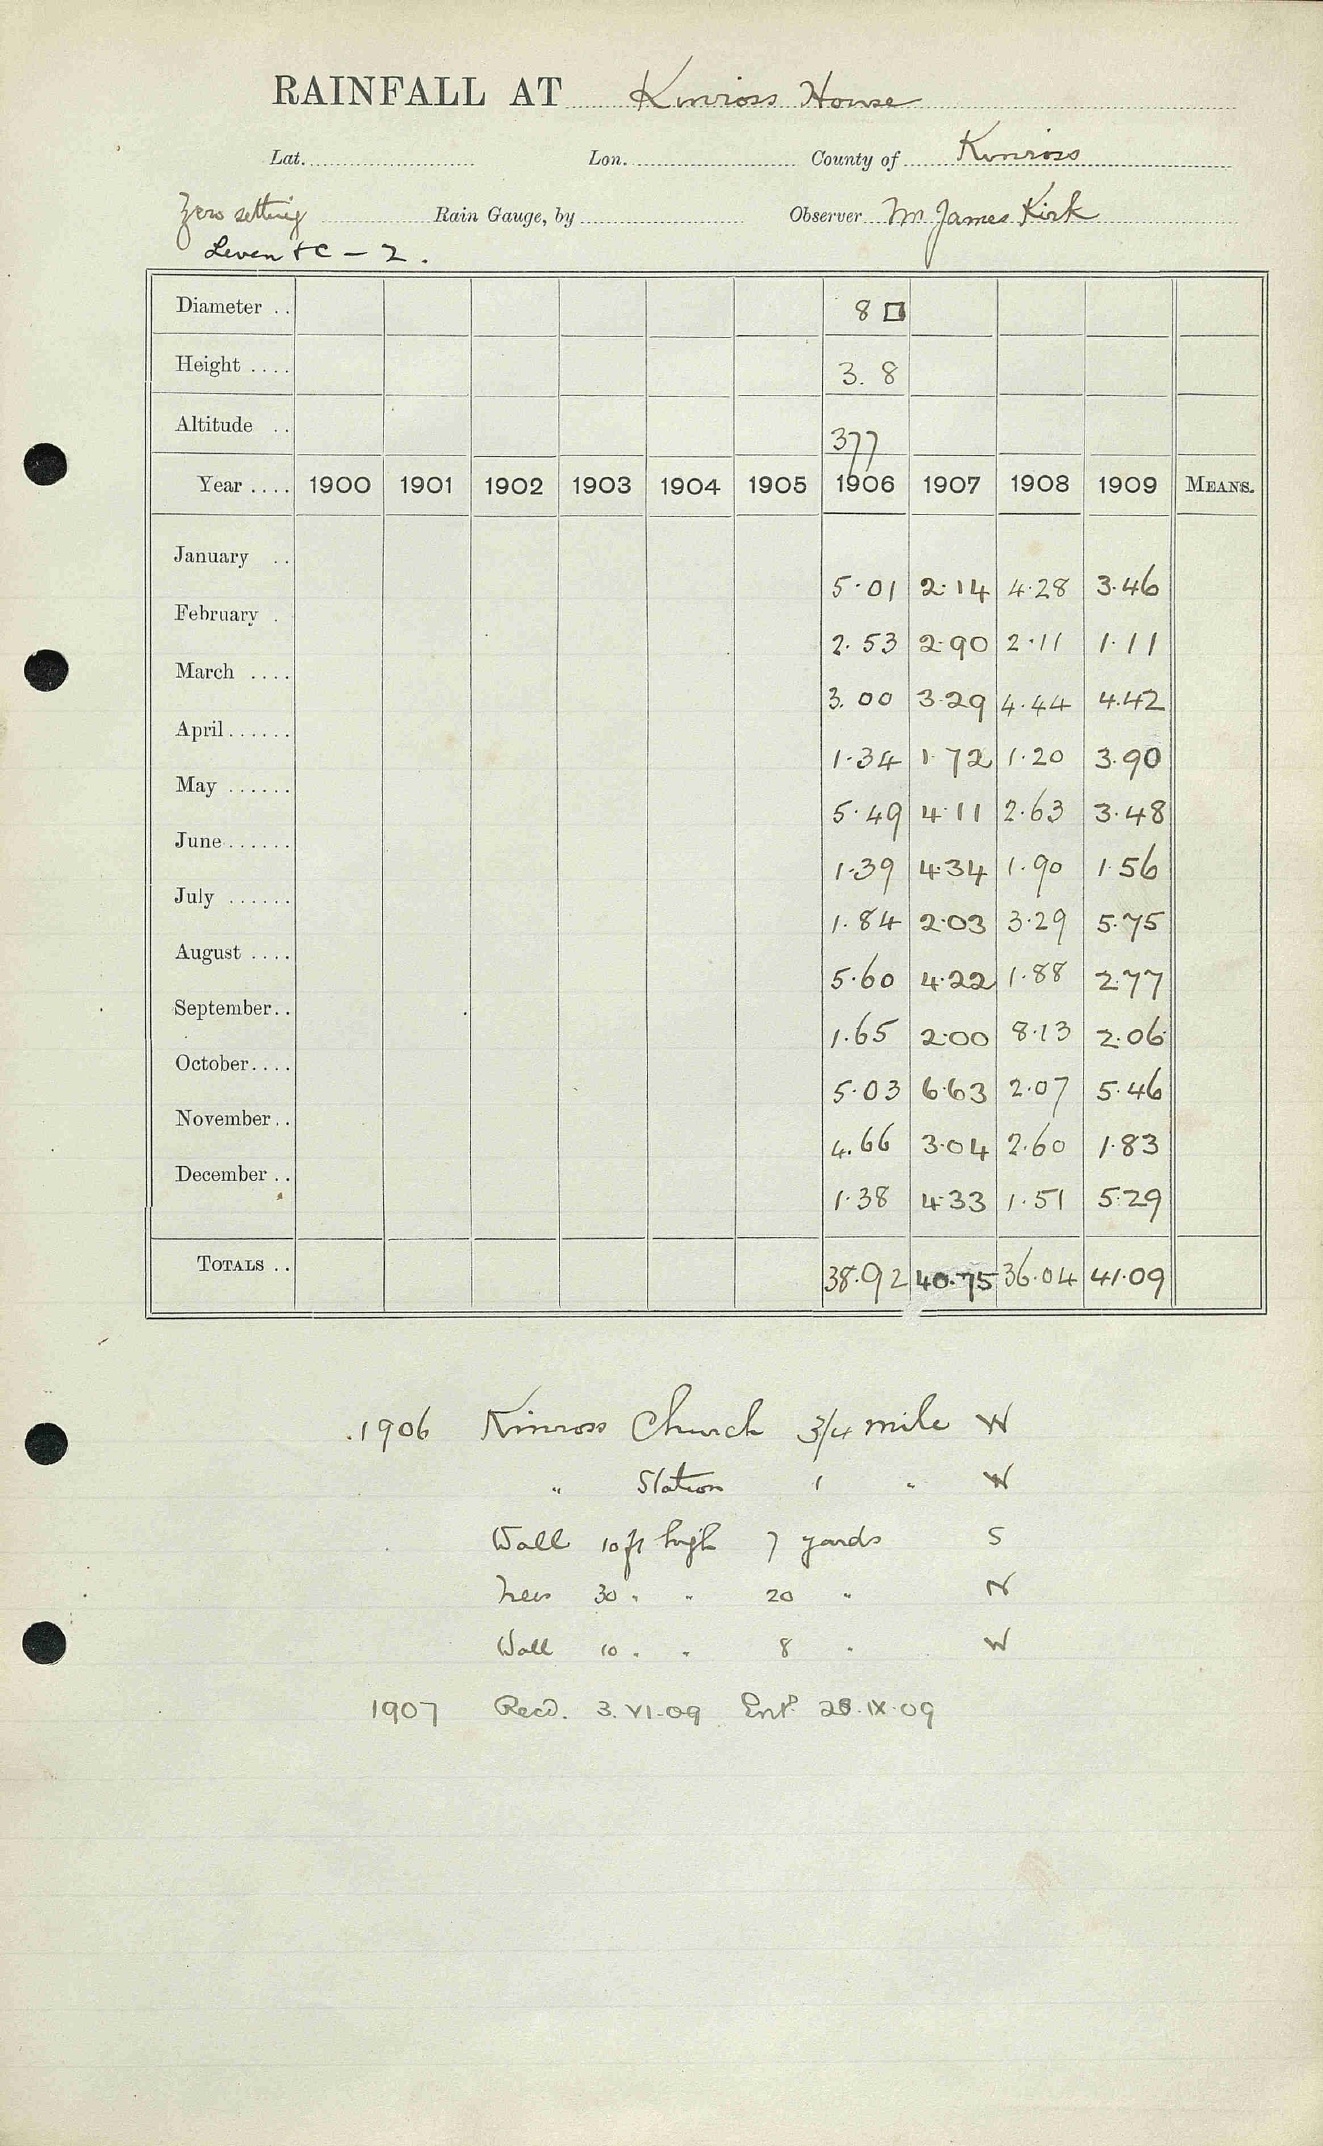 RAINFALL AT Kinross House
Lat. Lon. County of Kinross
Zero setting Rain Gauge, by Observer Mr James Kirk
Leven &c – 2.
Diameter .. 8 □
Height .... 3. 8
Altitude .. 377
Year .... 1900 1901 1902 1903 1904 1905 1906 1907 1908 1909 MEANS.
January .. 5.01 2.14 4.28 3.46
February . 2.53 2.90 2.11 1.11
March .... 3.00 3.29 4.44 4.42
April ...... 1.34 1.72 1.20 3.90
May ...... 5.49 4.11 2.63 3.48
June ...... 1.39 4.34 1.90 1.56
July ...... 1.84 2.03 3.29 5.75
August .... 5.60 4.22 1.88 2.77
September .. 1.65 2.00 8.13 2.06
October .... 5.03 6.63 2.07 5.46
November .. 4.66 3.04 2.60 1.83
December .. 1.38 4.33 1.51 5.29
TOTALS .. 38.92 40.75 36.04 41.09
1906 Kinross Church 3/4 mile W
" Station 1 " W
Wall 10 ft high 7 yards S
Trees 30 " " 20 " N
Wall 10 " " 8 " W
1907 Recd. 3.VI.09 Entd 28.IX.09